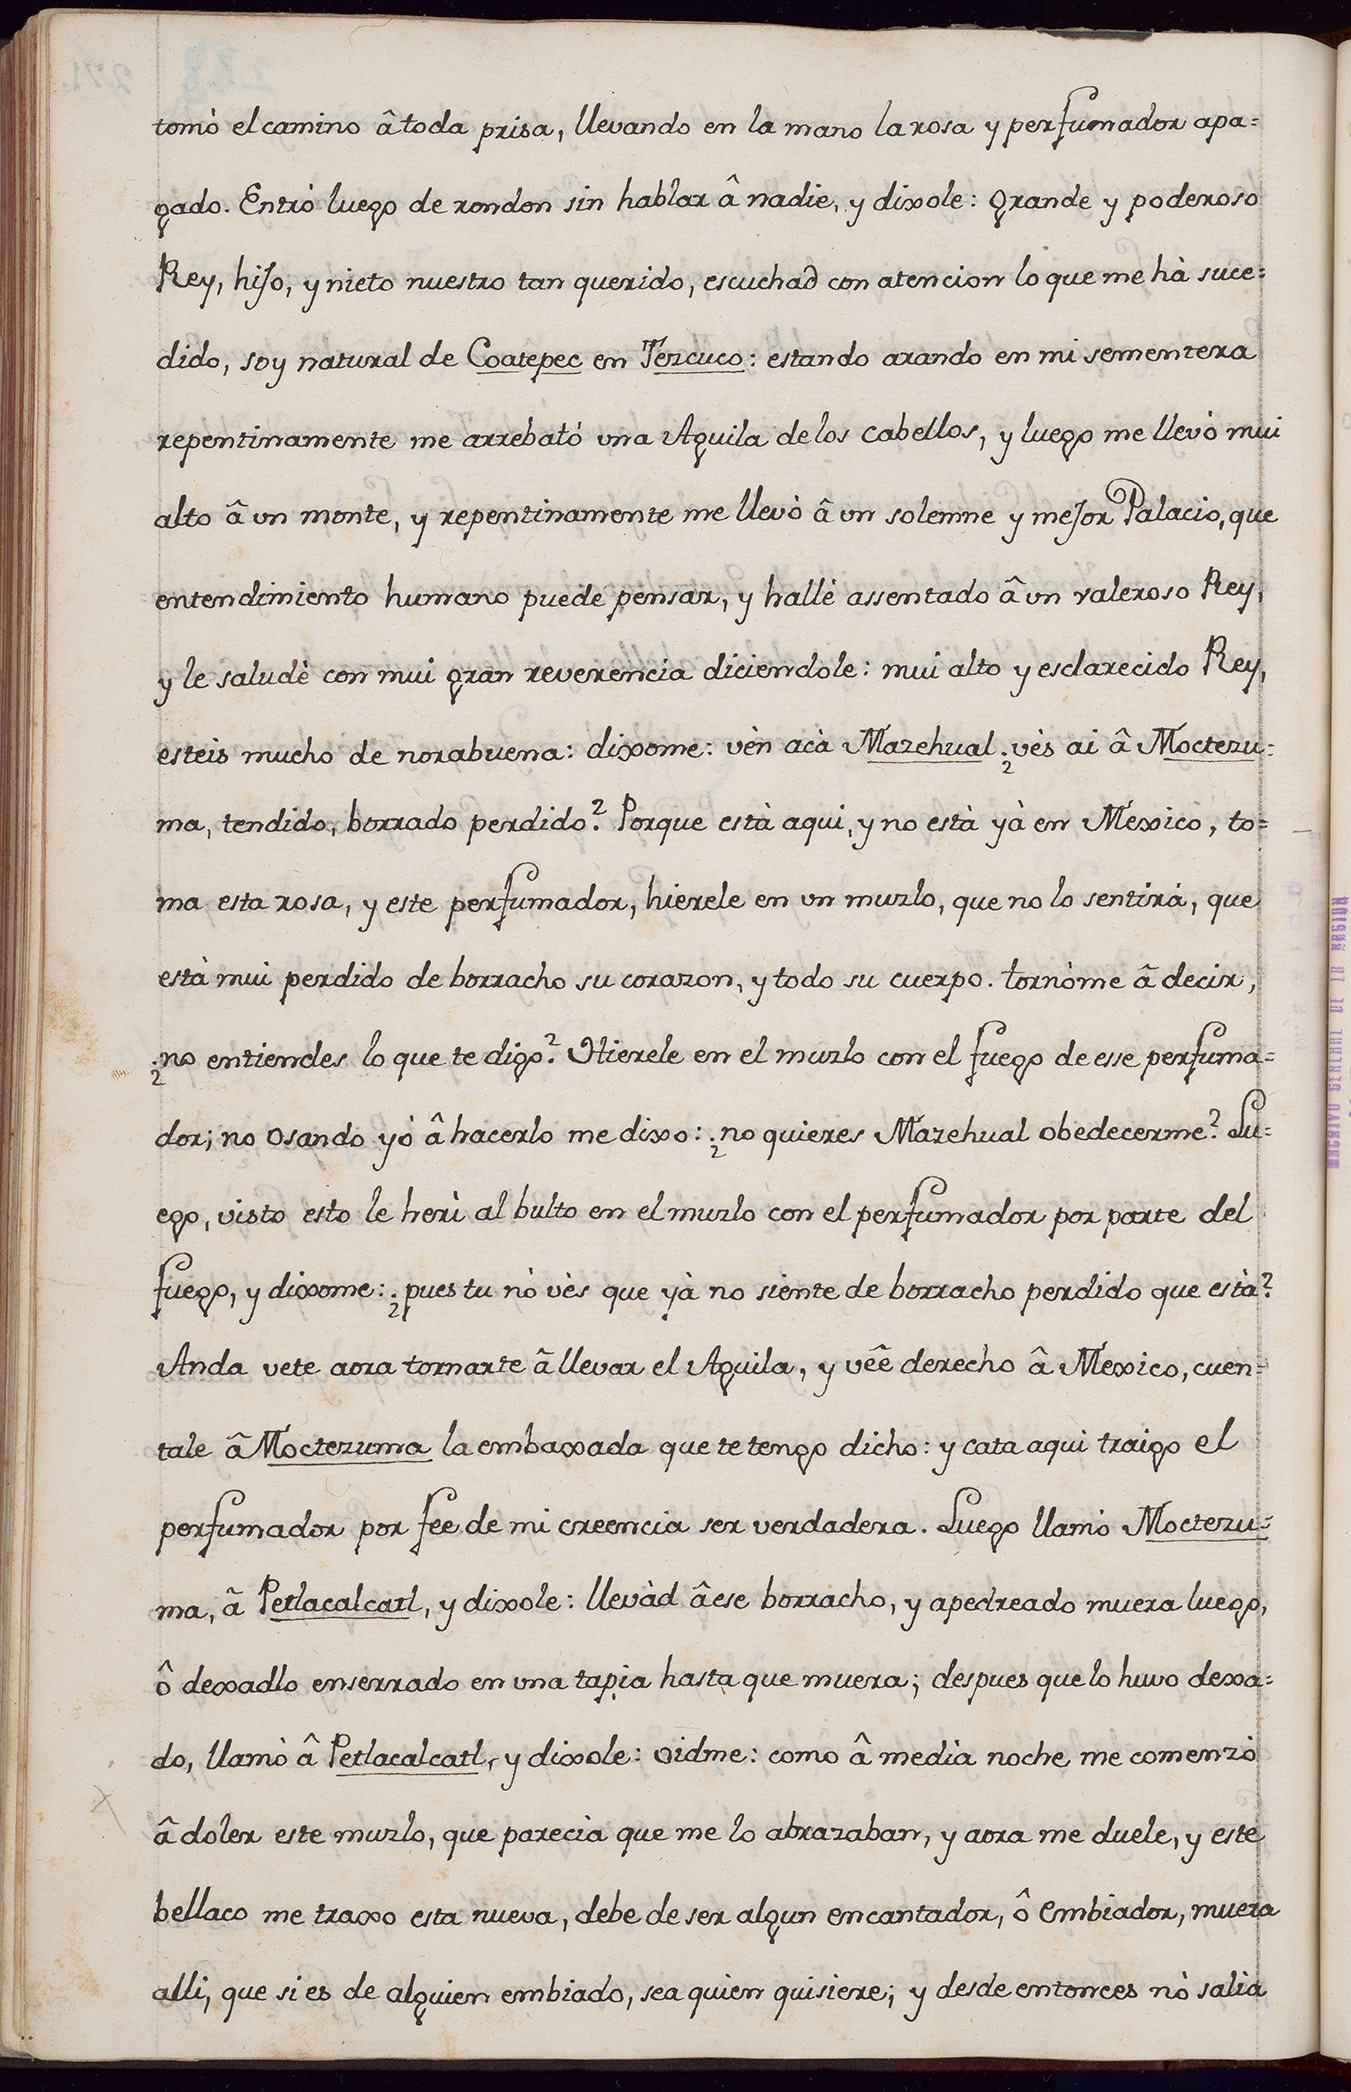 tomò el camino â toda prisa, llevando en la mano la rosa y perfumador apa=
gado. Entrò luego de rondon sin hablar â nadie, y dixole: grande y poderoso
Rey, hijo, y nieto nuestro tan querido, escuchad con atencion lo que me hà suce=
dido, soy natural de Coatepec en Tezcuco: estando arando en mi sementera
repentinamente me arrebató una Aguila de los cabellos, y luego me llevò mui
alto â un monte, y repentinamente me llevò â un solemne y mejor Palacio, que
entendimiento humano puede pensar, y hallè assentado â un valeroso Rey,
y le saludè con mui gran reverencia diciendole: mui alto y esclarecido Rey,
esteis mucho de norabuena: dixome: vèn acà Mazehual ¿vès ai â Moctezu=
ma, tendido, borrado perdido? Porque està aqui, y no està yà en Mexico, to=
ma esta rosa, y este perfumador, hierele en un muzlo, que no lo sentirà, que
està mui perdido de borracho su corazon, y todo su cuerpo. tornòme â decir,
¿no entiendes lo que te digo? Hierele en el muzlo con el fuego de esse perfuma=
dor; no osando yò â hacerlo me dixo: ¿no quieres Mazehual obedecerme? Lu=
ego, visto esto le herì al bulto en el muzlo con el perfumador por parte del
fuego, y dixome: ¿pues tu nò vès que yà no siente de borracho perdido que està?
Anda vete aora tornarte â llevar el Aguila, y veê derecho â Mexico, cuen=
tale â Moctezuma la embaxada que te tengo dicho: y cata aqui traigo el
perfumador por fee de mi creencia ser verdadera. Luego llamò Moctezu=
ma, â Petlacalcatl, y dixole: llevàd â ese borracho, y apedreado muera luego,
ô dexadlo enserrado en una tapia hasta que muera; despues que lo huvo dexa=
do, llamò â Petlacalcatl, y dixole: oidme: como â media noche me comenzò
â doler este muzlo, que parecia que me lo abrazaban, y aora me duele, y este
bellaco me traxo esta nueva, debe de ser algun encantador, ô embiador, muera
alli, que si es de alguien embiado, sea quien quisiere; y desde entonces nò salia
ARCHIVO GENERAL DE LA NACION